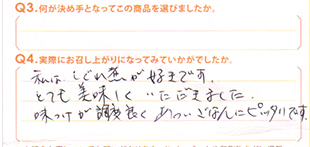 Q3.何が決め手となってこの商品を選びましたか。
Q4.実際にお召し上がりになってみていかがでしたか。
私は しぐれ煮が好きです。
とても美味しく いただきました.
味つけが 調度良く あついごはんにピッタリです。